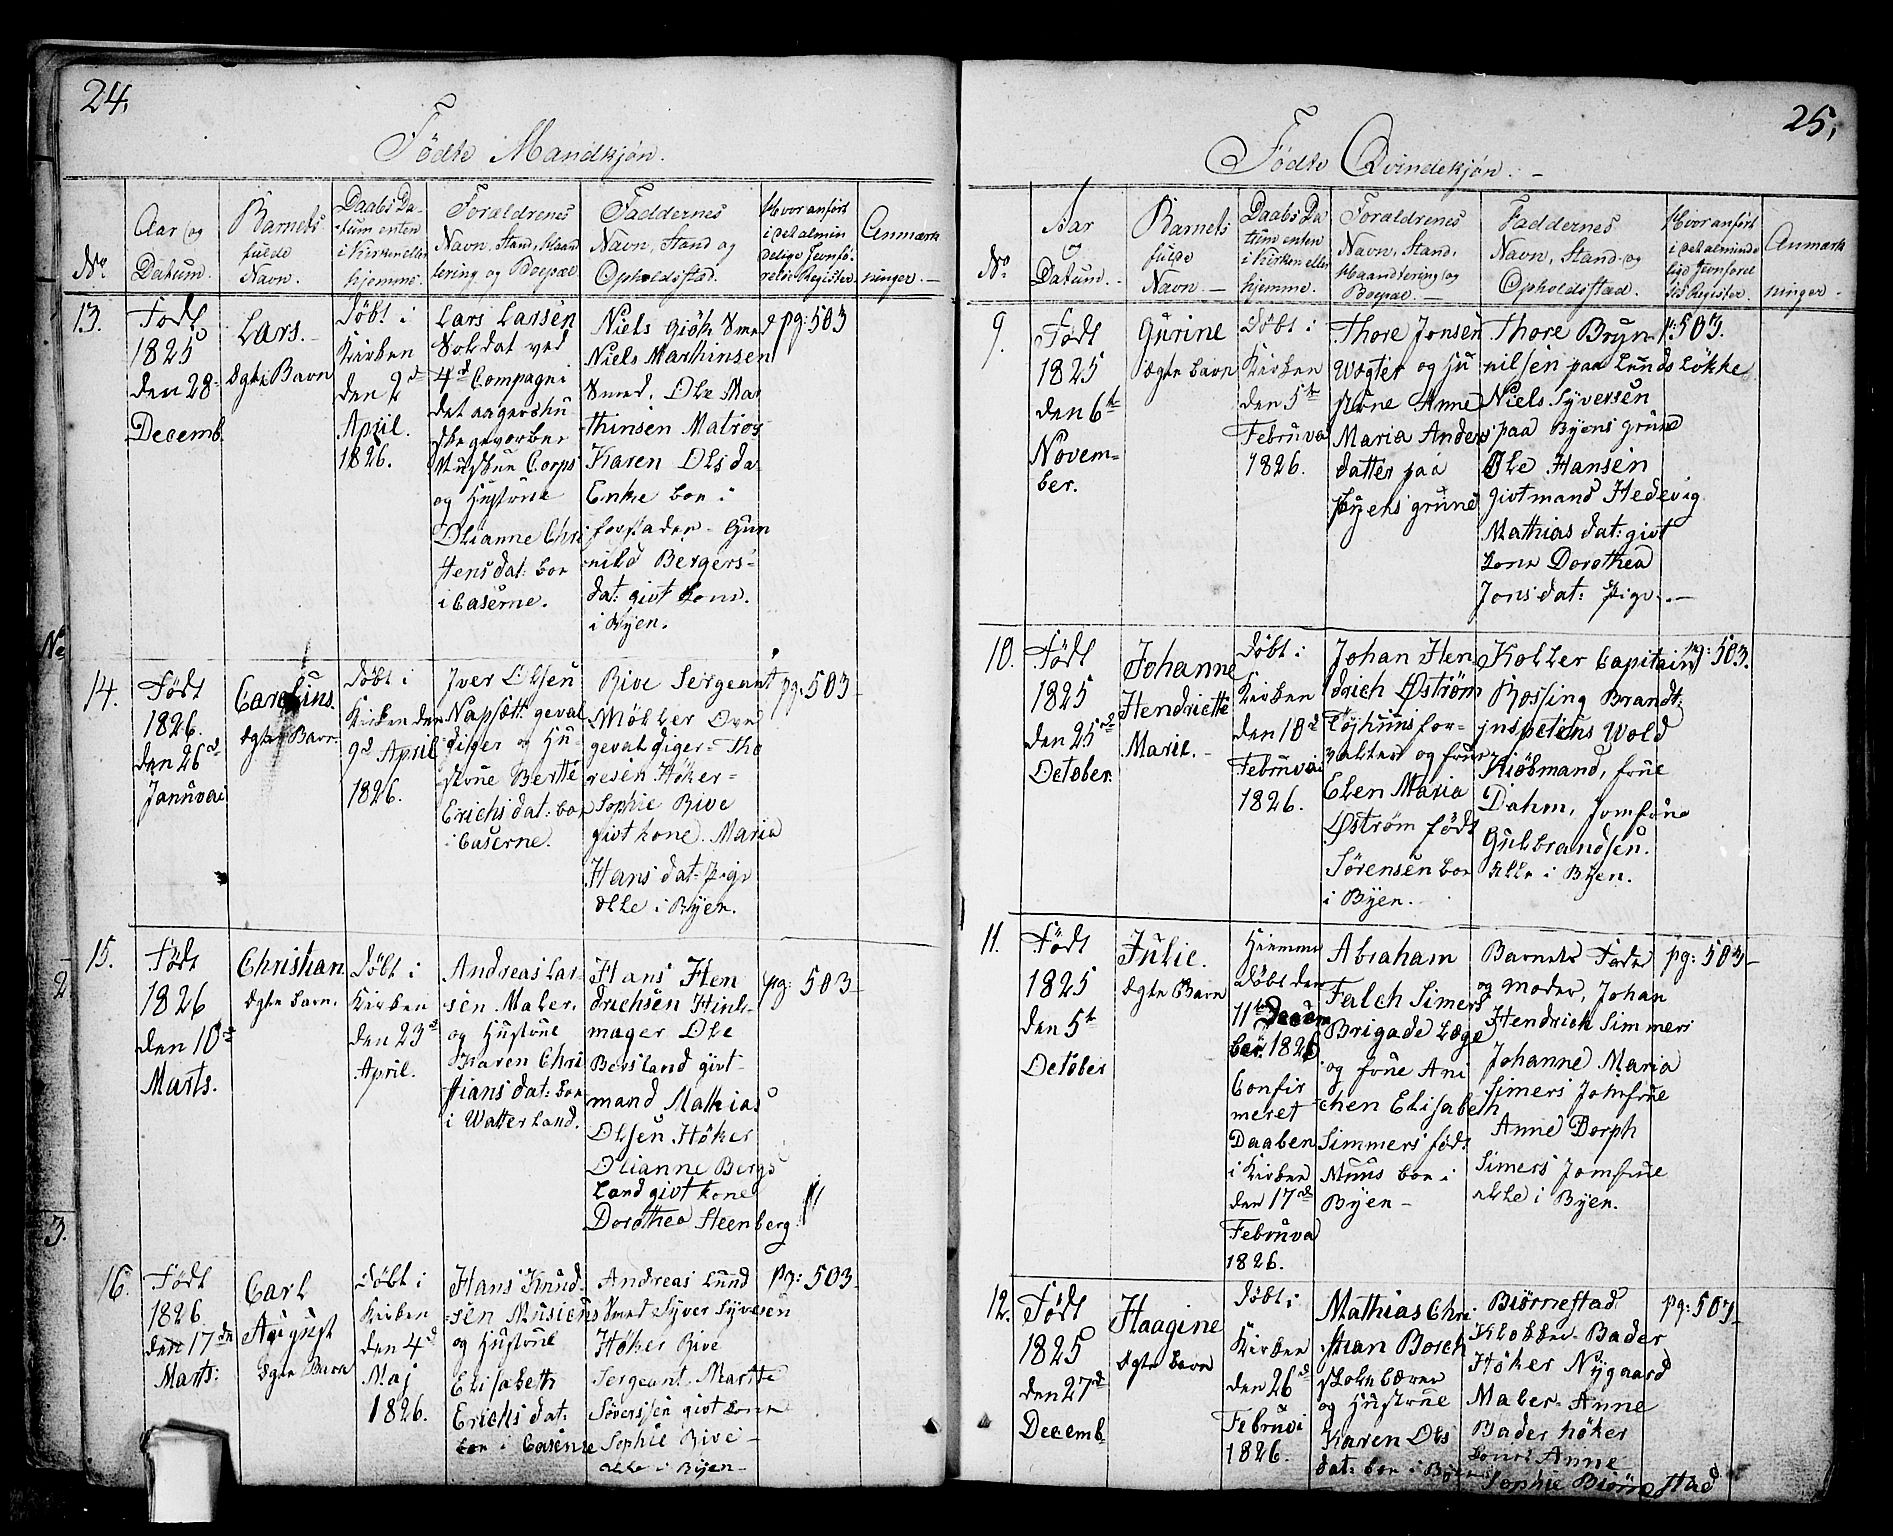 24.
Födte Mandkjøn.
No.
Aar og
Datum.
Barnets
fulde
Navn.
Daabs Da-
tum enten
i Kirken eller
hjemme.
Forældrenes
Navn, Stand, Haand
tering og Boepæl
Faddernes
Navn, Stand og
Opholdsstad.
Hvor anført
i det almin
delige Jevnfø-
relse Register.
Anmærk
ninger.
13.
Født
1825
den 28
Decemb.
Lars.
ægte Barn
Døbt i
Kirken
den 2d
April.
1826.
Lars Larsen
Soldat ved
4d Compagni
det aagershu
ske gevorbne
Corps
og Hustrue
Olianne Chri
stens dat: boe
i Caserne.
Niels Giöh Smed
Niels Marthinsen
Smed. Ole Mar
thinsen Matros
Karen Olsda
Enke boe i
forstaden Gun
nild Bergers-
dat: givt kone.
i Byen.
pg: 503
14.
Født
1826.
den 26d
Januvai
Carelius.
ægte Barn
Døbt i
Kirken den
9d April
1826.
Iver Olsen
geval
diger og Hu-
strue Berthe
Erichs dat: boe
i Caserne.
Rive Sergeant
Møller Over
gevaldiger Tho
resen Höker
Sophie Rive
givt kone. Maria
Hans dat. Pige
alle i Byen.
pg: 503
15.
Født
1826
den 10d
Marts.
Christian
ægte barn.
Døbt i
Kirken
den 23d
April.
Andreas Lar-
sen Maler.
og Hustrue
Karen Chri
stians dat: boe
i Watterland.
Hans Hen
drichsen Hiul-
mager Ole
Bersland givt-
mand Mathias
Olsen Höker
Olianne Bergs
land givt kone
Dorothea Steenberg
pg: 503
16.
Født
1826.
den 17de
Marts.
Carl
August
ægte Barn
Døbt i
Kirken
den 4d
Maj
1826.
Hans Knud-
sen Musicus
og Hustrue
Elisabeth
Erichs dat:
boe i Caserne
Andreas Lund
Smed Syver Syversen
Höker Rive
Sergeant. Marthe
Söverssen givt kone
Sophie Rive
alle i Byen
pg: 503
25.
Födte Qvindekjøn.
No.
Aar
og
Datum.
Barnets
fulde
Navn.
Daabs Da
tum enten
i Kirken eller
hjemme.
Forældrenes
Navn, Stand,
Haandtering og
Boepæl.
Faddernes
Navn, Stand og
Opholdsstad.
Hvor anført
i det alminde
lige Jevnførel
ses Register.
Anmærk
ninger
9.
Født
1825
den 6te
Novem-
ber.
Gurine
ægte barn
Døbt i
Kirken
den 5te
Februvai
1826.
Thore Jonsen
Wægter og Hu
strue Anne
Maria Anders
datter paa
Byens grund
Thore Bryn
nilsen paa Lunds Løkke
Niels Syversen
paa Byens grund
Ole Hansen
givtmand Hedevig
Mathias dat: givt
kone Dorothea
Jons dat: Pige.
p: 503.
10.
Født
1825
den 25de
October.
Johanne
Hendriette
Marie.
Døbt i
Kirken
den 10d
Februvai
1826.
Johan Hen
drich Østrøm
Töyhuusfor-
valter og frue
Elen Maria
Østrøm født
Sørensen boe
i Byen.
Koller Capitain
Rossing Brandt
inspecteur Wold
Kiøbmand, frue
Dahm, Jomfrue
Gulbrandsen.
alle i Byen.
pg: 503.
11.
Født
1825
den 5te
October
Julie.
ægte Barn
Hiemme
døbt den
11te Decem
ber 1825
Confir
meret
Daaben
i Kirken
den 17de
Februva
1826.
Abraham
Falch Simers
Brigade Læge
og frue Ani
chen Elisabeth
Simmers født
Muus boe i
Byen
Barnets Fader
og moder, Johan
Hendrich Simmers
Johanne Maria
Simers Jomfrue
Anne Dorph
Simers Jomfrue
alle i Byen.
pg: 503
12.
Født
1825
den 27d
Decemb
Haagine
ægte barn
Døbt i
Kirken
den 26d
Februvi
1826.
Mathias Chri
stian Borch
Skolelærer
og Hustrue
Karen Ols
dat: boe i Byen
Biørnestad
Klokker Bader
Höker Nygaard
Maler Anne
Bader höker
kone Anne
Sophie Biørnestad
pg: 503